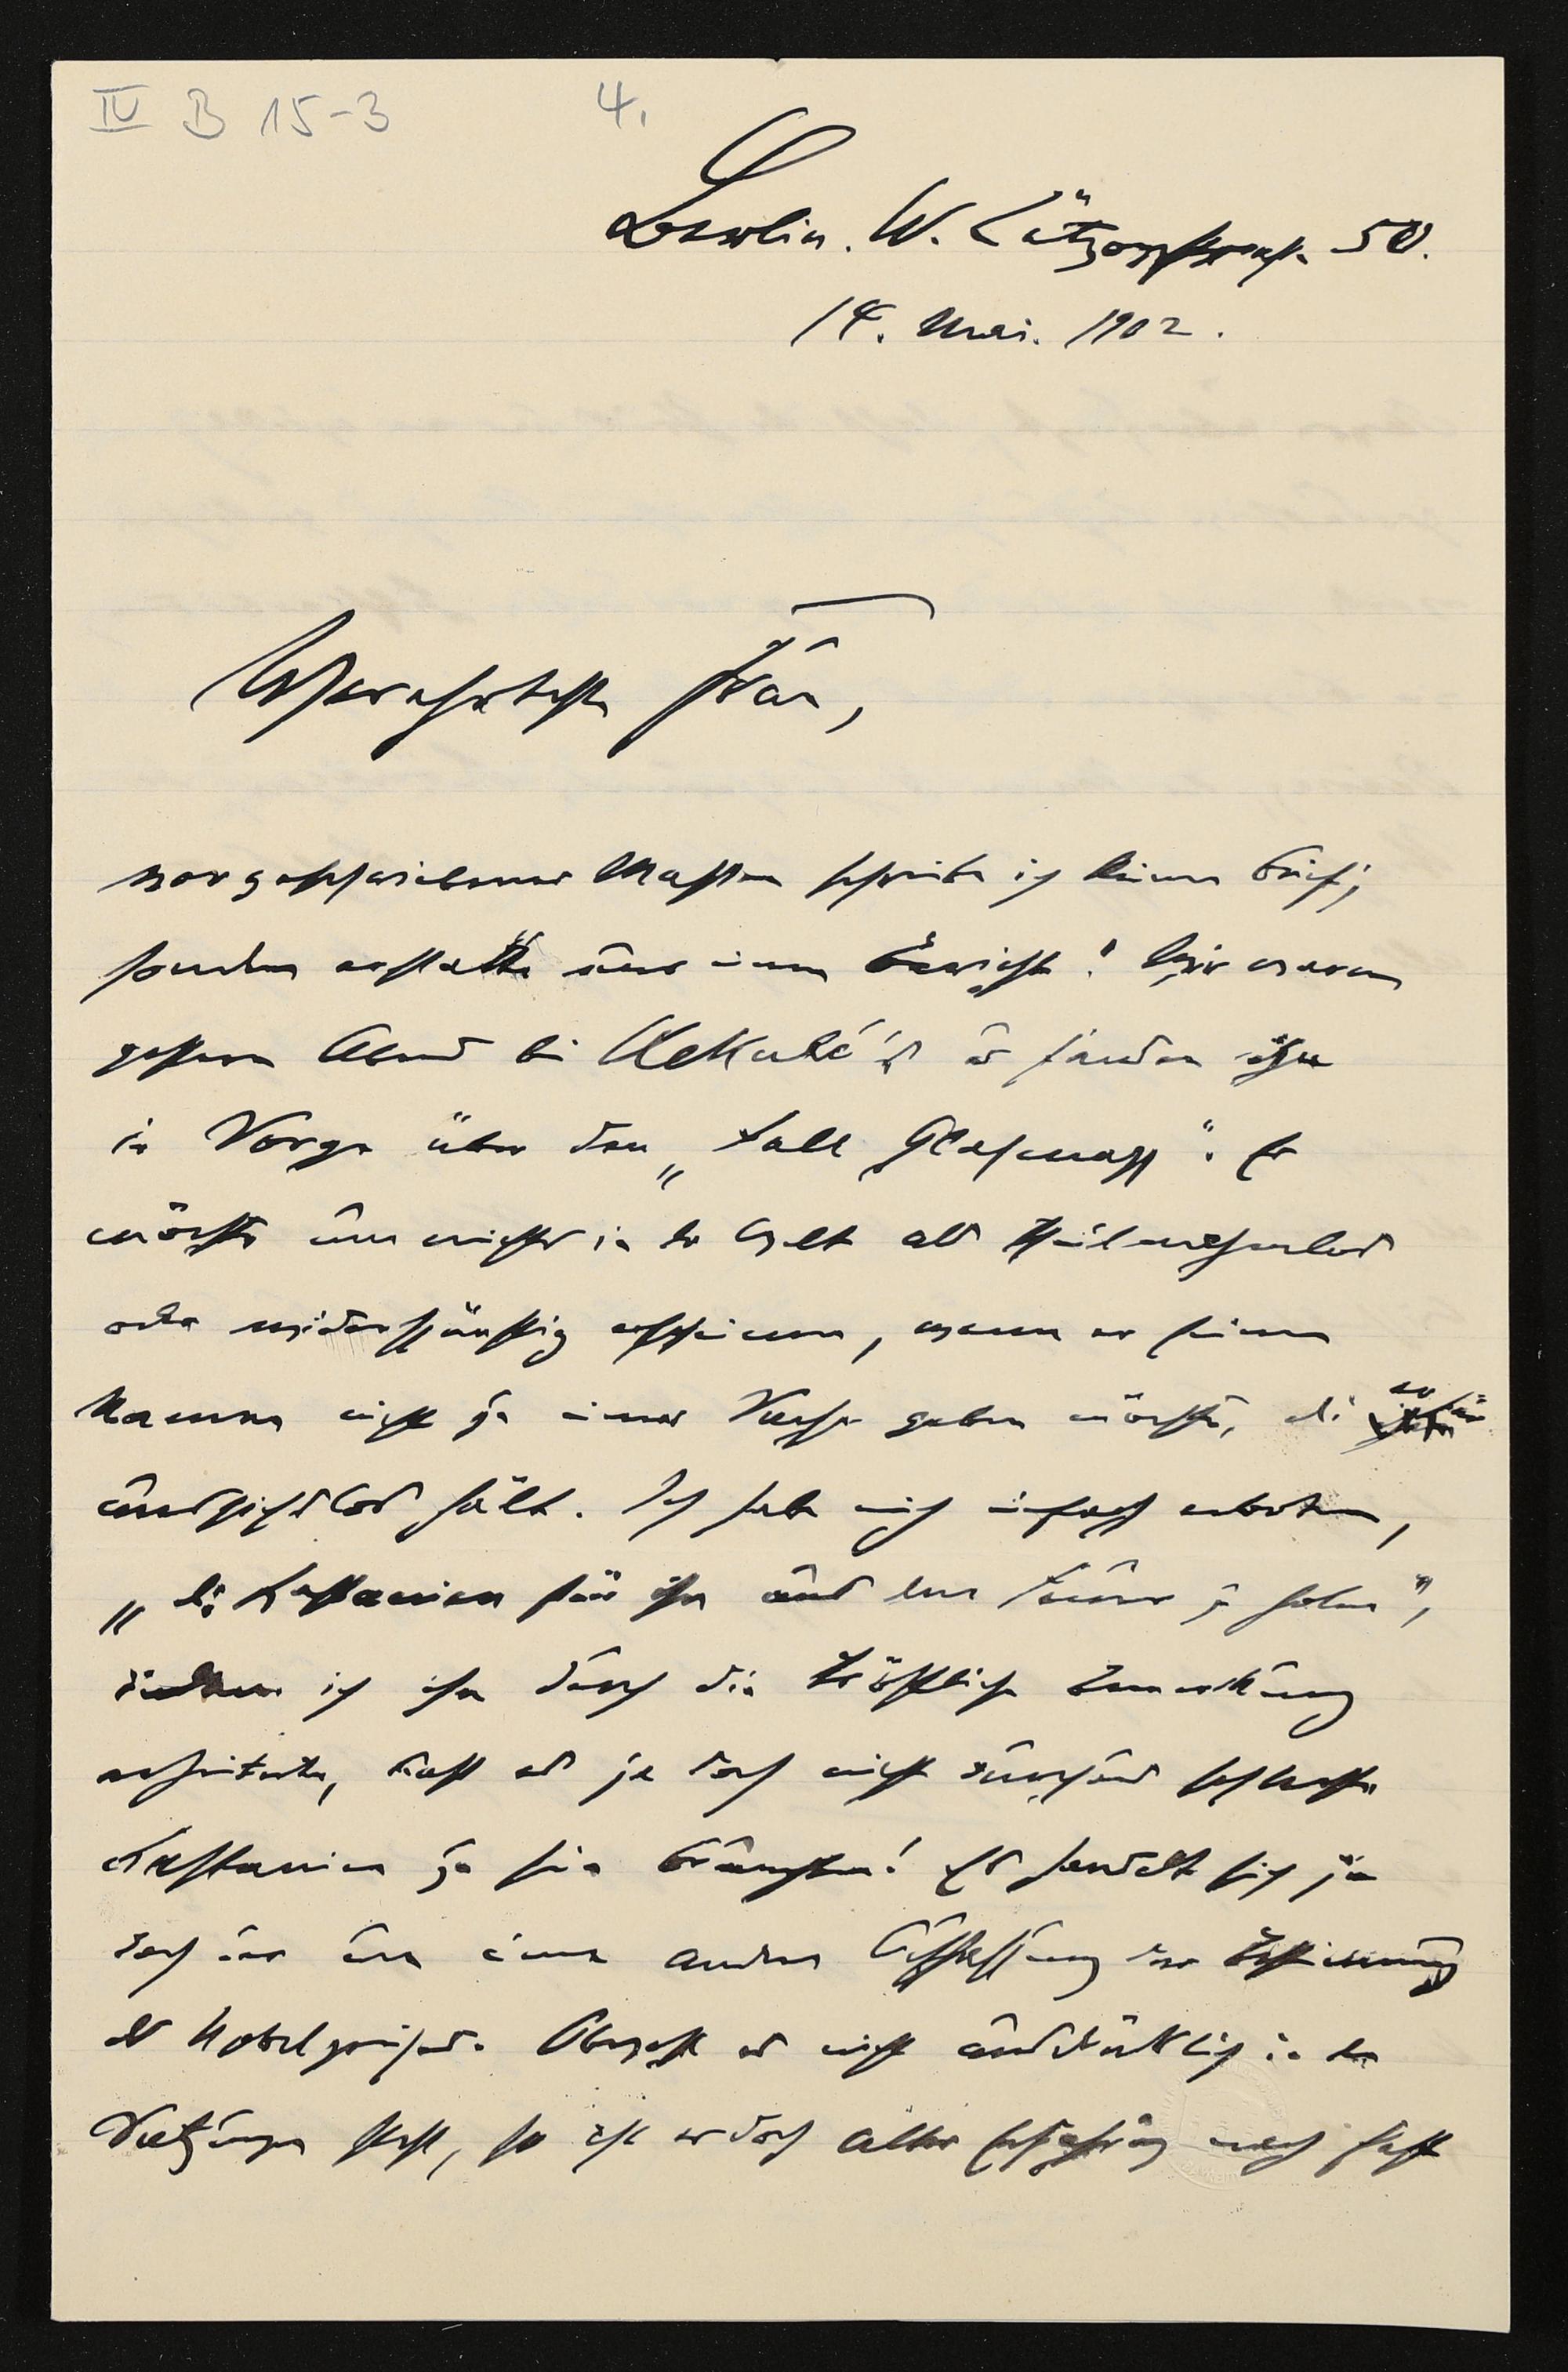 IV B 15-3 4.
Berlin. W. Lützowstrasse 50.
14. Mai. 1902.
Wohlverehrteste Frau,
vorgeschriebener Massen schreibe ich keinen Brief,
sondern erstatte nur einen Bericht! Wir waren
gestern Abend bei Kekulé's u fanden ihn
in Sorge über den „Fall Glasenapp“. Er
möchte um nichts in der Welt als theilnahmslos
oder widerspänstig erscheinen, wenn er seinen
Namen nicht zu einer Sache geben möchte, die er für
aussichtslos hält. Ich habe mich einfach erboten,
„die Kastanien für ihn aus dem Feuer zu holen“,
indem ich ihn durch die tröstliche Bemerkung
erheiterte, dass es ja doch nicht durchaus schlechte
Kastanien zu sein brauchten! Es handelt sich ja
doch nur um eine andere Auffassung der Bestimmung
des Nobelpreises. Obwohl es nicht ausdrücklich in den
Satzungen steht, so ist er doch aller Erfahrung nach fast